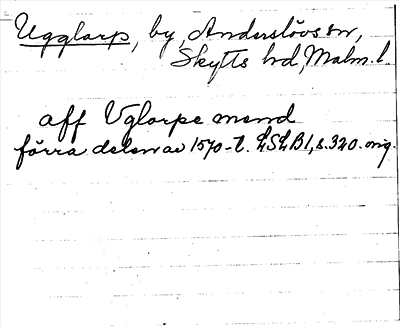 Ugglarp, by, Anderslövs sn,
Skytts hd, Malm. l.
aff Uglarpe mend
förra delen av 1570-t. LSLB1, s. 320. orig.